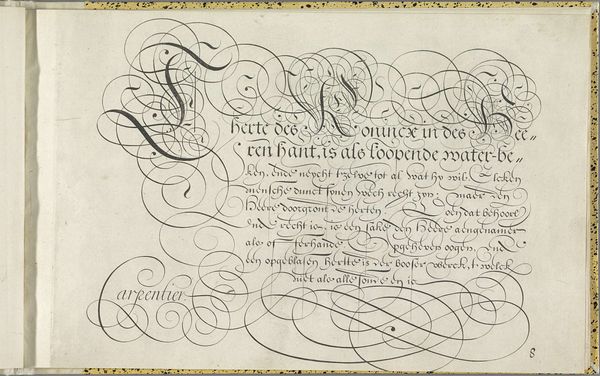 T herte des Conincx in des Hee=
ren hant, is als loopende water-be=
ken, ende neycht tzelve tot al wat hy wil Elcken
mensche dunct synen wech recht zyn: maer den
Heere doorgront de herten. Doen dat behoort
end recht is, is een sake den Heere aengenamer
als offerhande. Opgeheven oogen, end
een opgeblasen herte is der booser werck, twelck
niet als alle sonde en is
Carpentier.
8